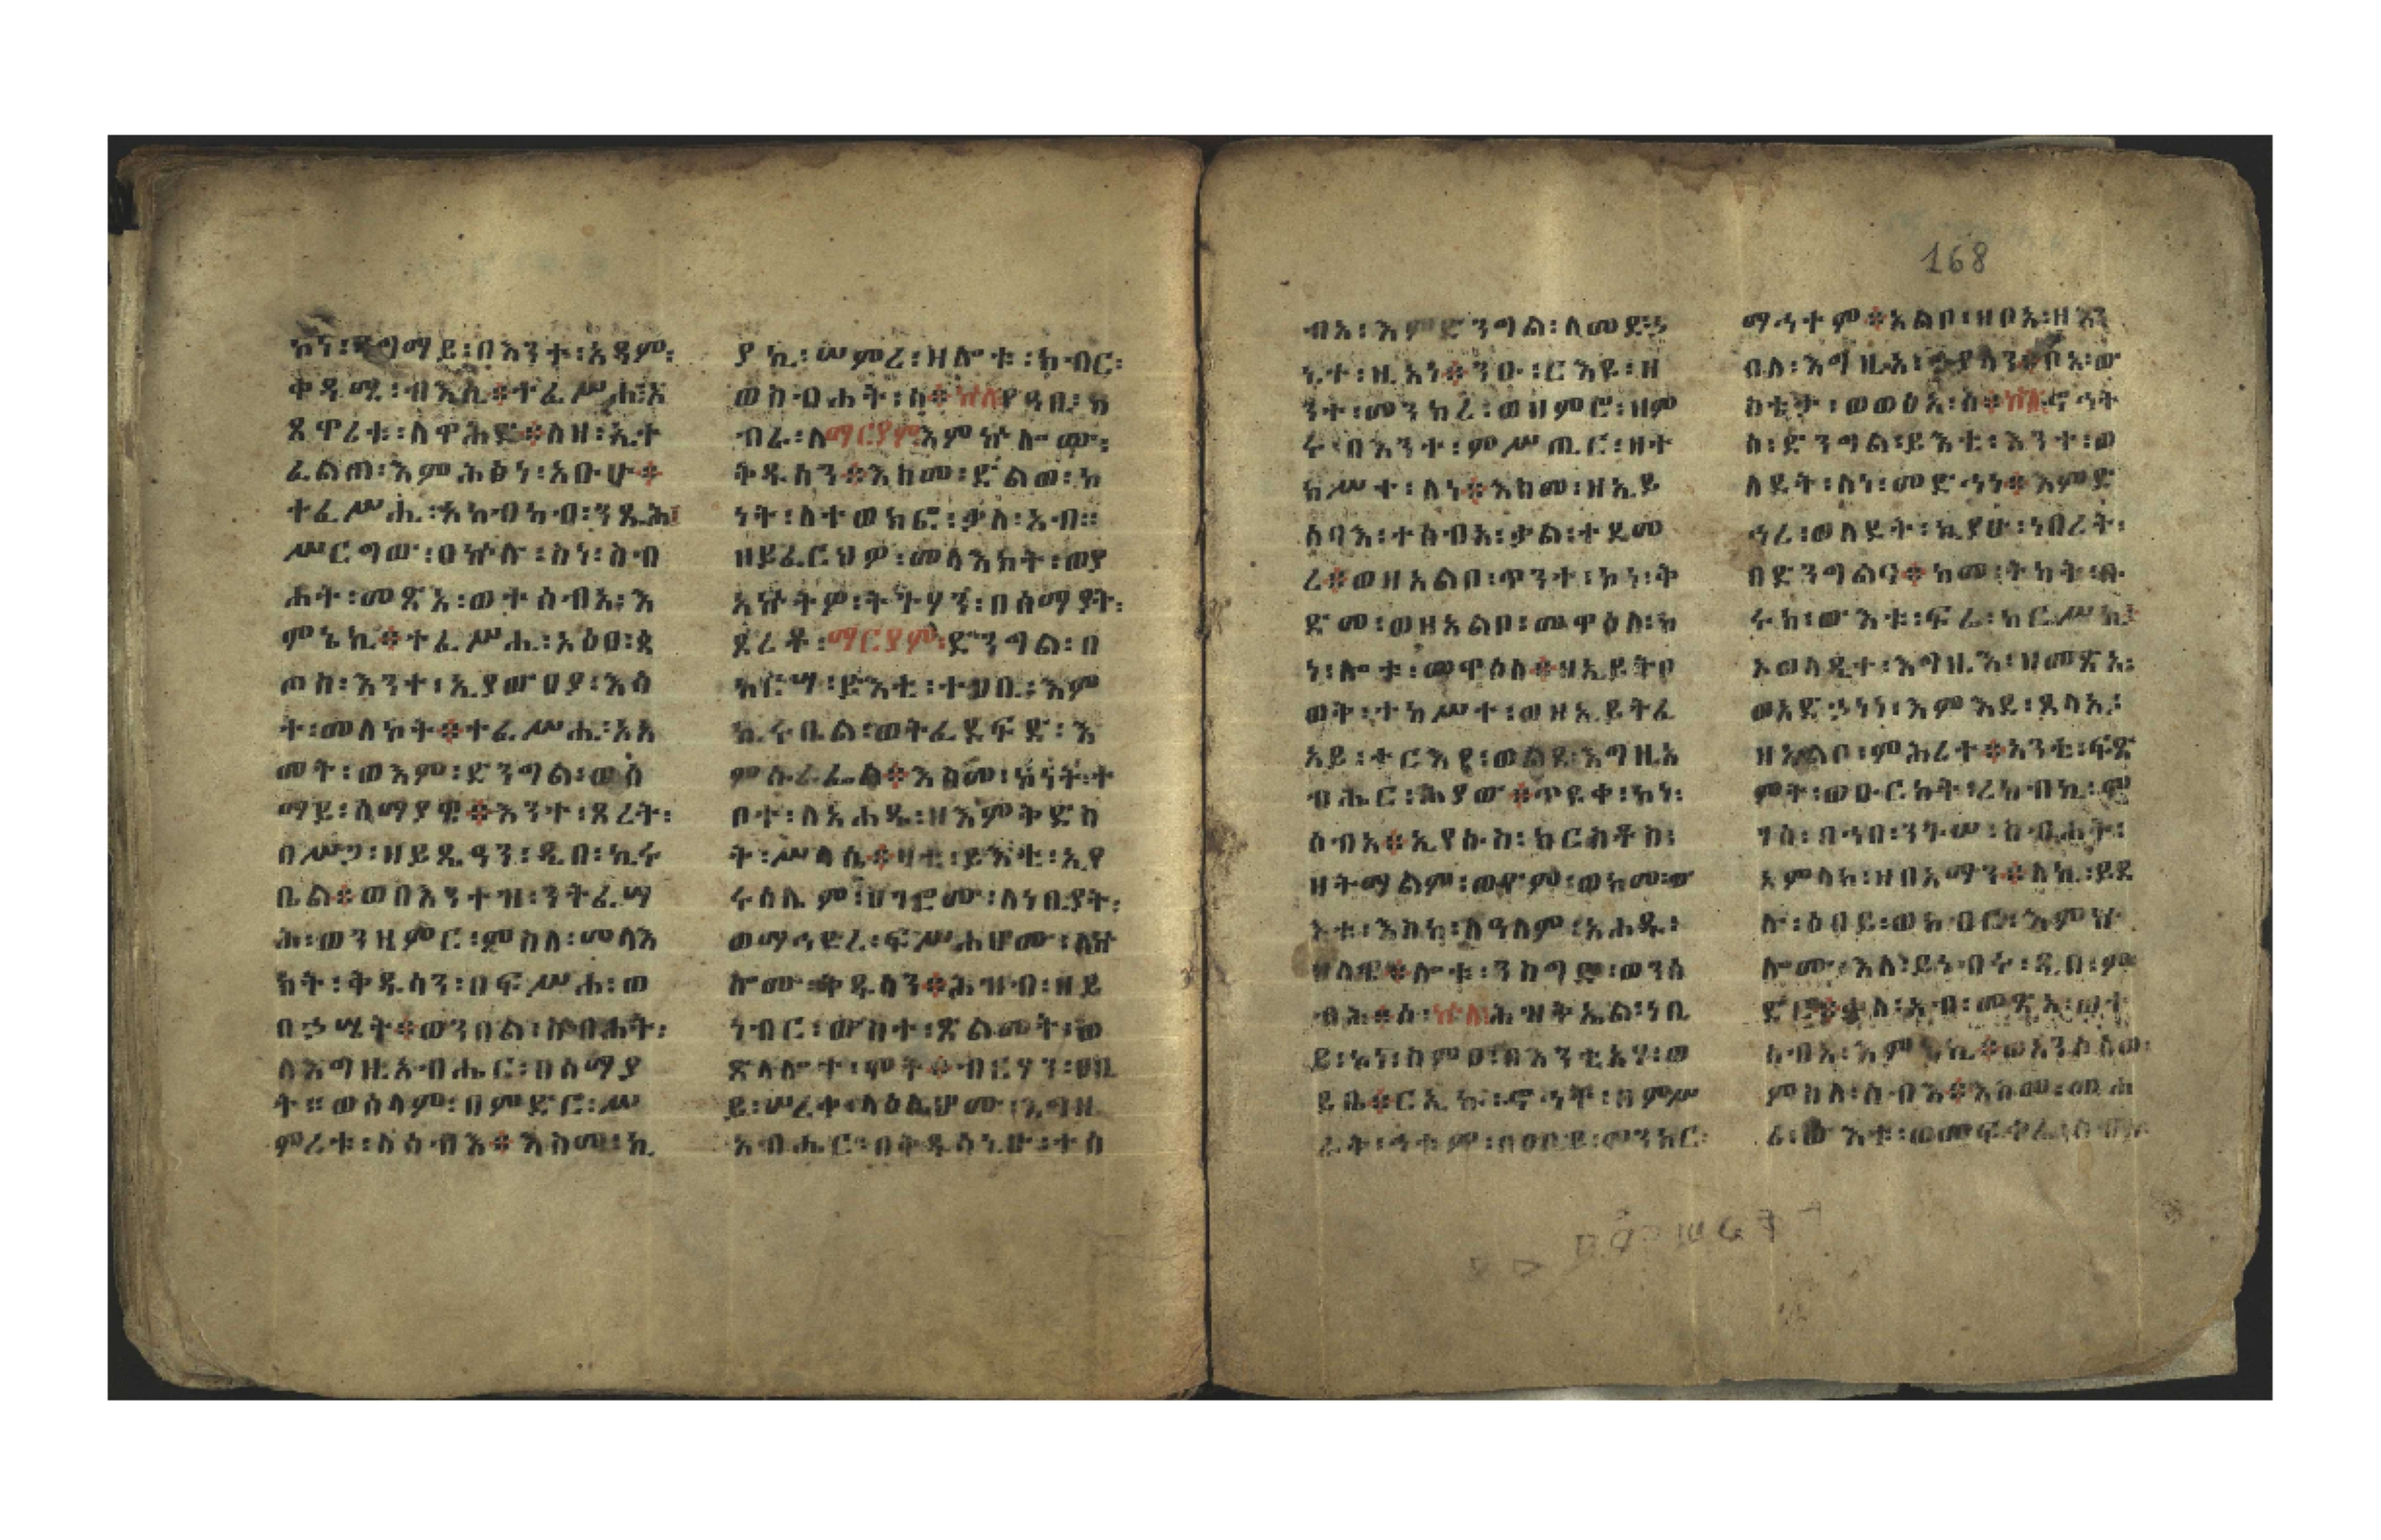 ከነ፡ዳግማይ፡በእንተ፡አዳም፡
ቀዳሚ፡ብእሲ፨ተፈሥሒ፡እ
ጾዋሪቱ፡ለዋሕድ፨ለዘ፡ኢተ
ፈልጠ፡እምሕፅነ፡አቡሁ፨
ተፈሥሒ፡አክብካብ፡ንጹሕ፡
ሥርግው፡በኵሉ፡ስነ፡ስብ
ሐት፡መጽአ፡ወተሰብአ፡እ
ምኔኪ፨ተፈሥሒ፡አዕፀ፡ጳ
ጦስ፡እንተ፡ኢያውዐያ፡እሳ
ተ፡መለኮት፨ተፈሥሒ፡አአ
መት፡ወእም፡ድንግል፡ወሰ
ማይ፡ሰማያዊ፨እንተ፡ጾረት፡
በሥጋ፡ዘይጼዓን፡ዲበ፡ኪሩ
ቤል፨ወበእንተዝ፡ንትፈሣ
ሕ፡ወንዘምር፡ምስለ፡መላእ
ክት፡ቅዱሳን፡በፍሥሐ፡ወ
በኃሤት፨ወንበል፡ስብሐት፡
ለእግዚአብሔር፡በሰማያ
ት።ወሰላም፡በምድር፡ሥ
ምረቱ፡ለሰብእ፨እስመ፡ኪ
ያኪ፡ሠምረ፡ዘሎቱ፡ክብር፡
ወስብሐት፡ሰ፨ቅለ፡የዓቢ፡ክ
ብራ፡ለማርያም፡እምኵሎሙ፡
ቅዱሳን፨እስመ፡ደልወ፡ኮ
ነት፡ለተወክፎ፡ቃለ፡አብ።
ዘይፈርህዎ፡መላእክት፡ወያ
አኵትዎ፡ትጉሃን፡በሰማያት፡
ጾረቶ፡ማርያም፡ድንግል፡በ
ከርሣ፡ይእቲ፡ተዐቢ፡እም
ኪሩቤል፡ወትፈደፍድ፡እ
ምሱራፌል፨እስመ፡ኮነት፡ተ
ቦተ፡ለአሐዱ፡ዘእምቅድስ
ት፡ሥላሴ፨ዛቲ፡ይእቲ፡ኢየ
ሩሳሌም፡ሀገሮሙ፡ለነቢያት፡
ወማኅደረ፡ፍሥሐሆሙ፡ለኵ
ሎሙ፡ቅዱሳን፨ሕዝብ፡ዘይ
ነብር፡ውስተ፡ጽልመት፡ወ
ጽላሎተ፡ሞት፨ብርሃን፡ዐቢ
ይ፡ሠረቀ፡ላዕሌሆሙ፡እግዚ
አብሔር፡በቅዱሳኒሁ፡ተሰ
ብአ፡እምድንግል፡ለመድኃ
ኒተ፡ዚአነ፨ንዑ፡ርእዩ፡ዘ
ንተ፡መንክረ፡ወዘምሩ፡ዘም
ሩ፡በእንተ፡ምሥጢር፡ዘተ
ከሥተ፡ለነ፨እስመ፡ዘኢይ
ሰባእ፡ተሰብአ፡ቃል፡ተደመ
ረ፨ወዘአልቦ፡ጥንተ፡ኮነ፡ቅ
ድመ፡ወዘአልቦ፡መዋዕለ፡ኮ
ነ፡ሎቱ፡መዋዕለ፨ዘኢይትዐ
ወቅ፡ተከሥተ፡ወዘኢይትረ
አይ፡ተርእየ፡ወልደ፡እግዚአ
ብሔር፡ሕያው፨ጥዩቀ፡ኮነ፡
ሰብአ፨ኢየሱስ፡ክርስቶስ፡
ዘትማልም፡ወዮም፡ወክመ፡ው
እቱ፡እስከ፡ለዓለም፡አሐዱ፡
ህላዌ፨ሎቱ፡ንስግድ፡ወንሰ
ብሕ፨ሰ፡ቅለ፡ሕዝቅኤል፡ነቢ
ይ፡ኮነ፡ስምዐ፡በእንቲአሃ፡ወ
ይቤ፨ርኢኩ፡ኆኅተ፡በምሥ
ራቅ፡ኅቱም፡በዐቢይ፡መንክር፡
ማኅተም፨አልቦ፡ዘቦአ፡ዘእን
በለ፡እግዚአ፡ኃያላን፨ቦአ፡ው
ስቴታ፡ወወፅአ፡ሰ፨ቅለ፡ኆኅት
ሰ፡ድንግል፡ይእቲ፡እንተ፡ወ
ለደት፡ለነ፡መድኅነ፨እምድ
ኅረ፡ወለደት፡ኪያሁ፡ነበረት፡
በድንግልና፨ከመ፡ትካት፡ቡ
ሩክ፡ውእቱ፡ፍሬ፡ከርሥኪ፡
ኦወላዲተ፡እግዚእ፡ዘመጽአ፡
ወአድኃነነ፡እምእደ፡ጸላኢ፡
ዘአልቦ፡ምሕረተ፨አንቲ፡ፍጽ
ምት፡ወቡርክት፡ረከብኪ፡ሞ
ገሰ፡በኀበ፡ንጉሠ፡ስብሐት፡
አምላክ፡ዘበአማን፨ለኪ፡ይደ
ሉ፡ዕበይ፡ወክብር፡እምኵ
ሎሙ፡እለ፡ይነብሩ፡ዲበ፡ም
ድር፨ቃለ፡አብ፡መጽአ፡ወተ
ሰብአ፡እምኔኪ፨ወአንሶሰወ፡
ምስለ፡ሰብእ፨እስመ፡መሐ
ሪ፡ውእቱ፡ወመፍቀሬ፡ሰብእ
168